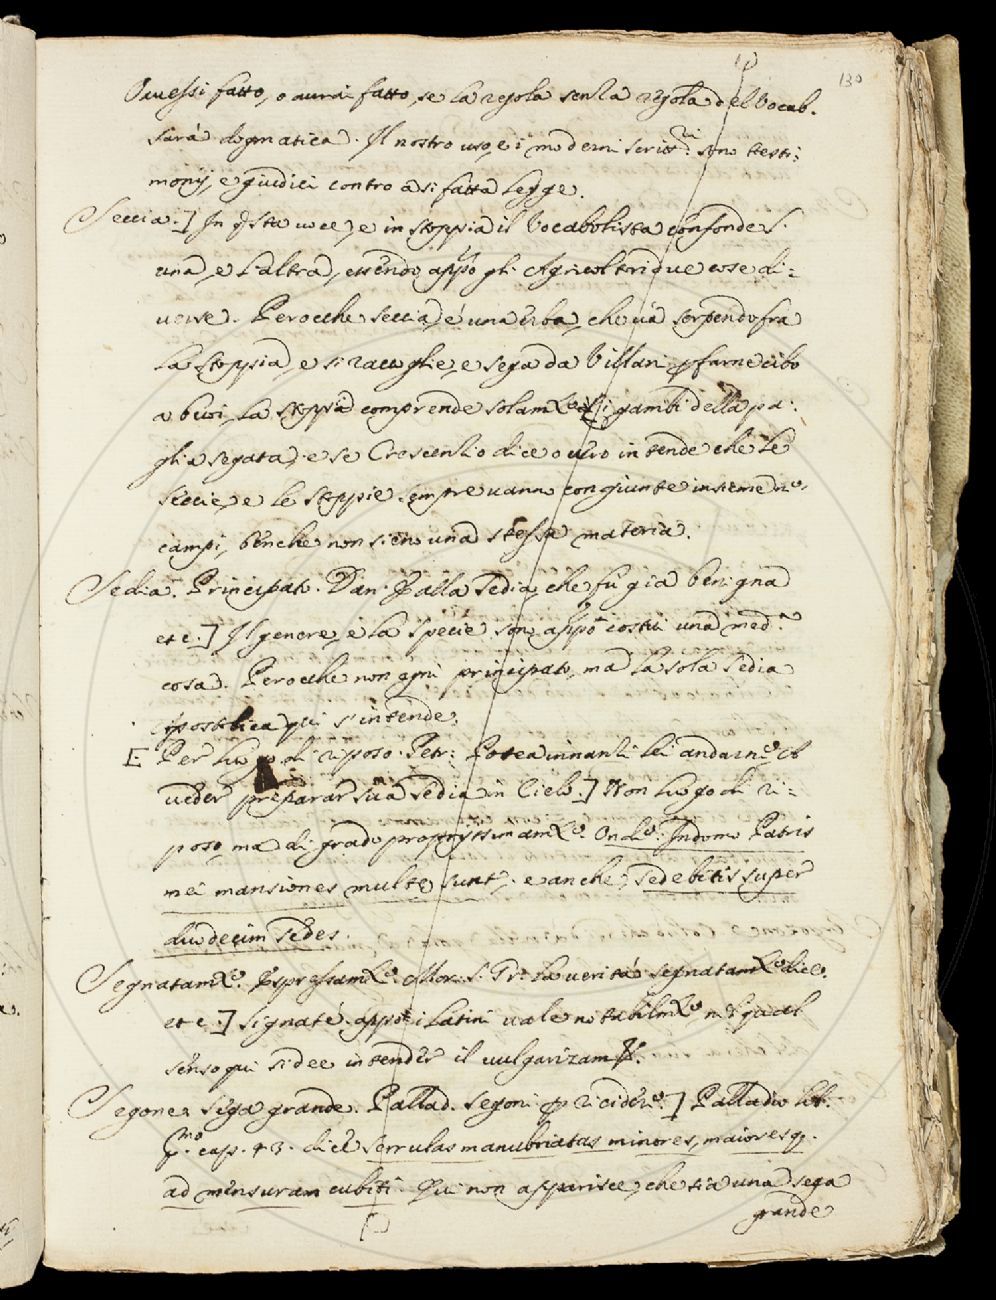 130
Ouessi fatto, o aurai fatto, se la regola senla regola del Vocab.
sarà dogmatica. Il nostro uso, e i moderni scritt.ri sono testi:
monij, e giudici contro a si fatta legge.
Seccia.] In q.sta voce, e in stoppia il Vocabolista confonde l'
una, e l'altra, essendo app.o gli Agricoltori due cose di:
uerse. Perocche seccia, è una erba, che uà serpendo fra
la stoppia, e si raccoglie, e sega da Villani p farne cibo
a buoi, la stoppia comprende solam.te i gambi della pa:
glia segata, e se Crescenzio dice o uero intende che le
seccie, e le stoppie sempre uanno congiunte insieme ne'
campi, benche non sieno una stessa materia.
Sedia. Principato. Dan. Alla sedia, che fù gia benigna
etc.] Il genere, e la specie son app.o costui una med.ma
cosa. Perocche non ogni principato, ma la sola sedia
Apostolica qui s'intende.
E Per luogo di riposo. Petr: Potea innanzi lei andarne, et
ueder preparar sua sedia in Cielo.] Non luogo di ri:
poso, ma di grado propriissimam.te. Onde: In domo Patris
mei mansiones multe sunt, e anche, sedebitis super
duodecim sedes.
Segnatam.te. Espressam.te. Mor: S. Gr: La verità segnatam.te dice.
etc.] signatè app.o i Latini uale notabilm.te nel qual
senso qui si dee intender il uulgarizam.to.
Segone. Sega grande. Pallad. segoni p ricider.e] Palladio lib.
p.mo cap. 43. dice serrulas manubriatas minores, maioresq.
ad mensuram cubiti. Qui non apparisce, che sia una sega
grande